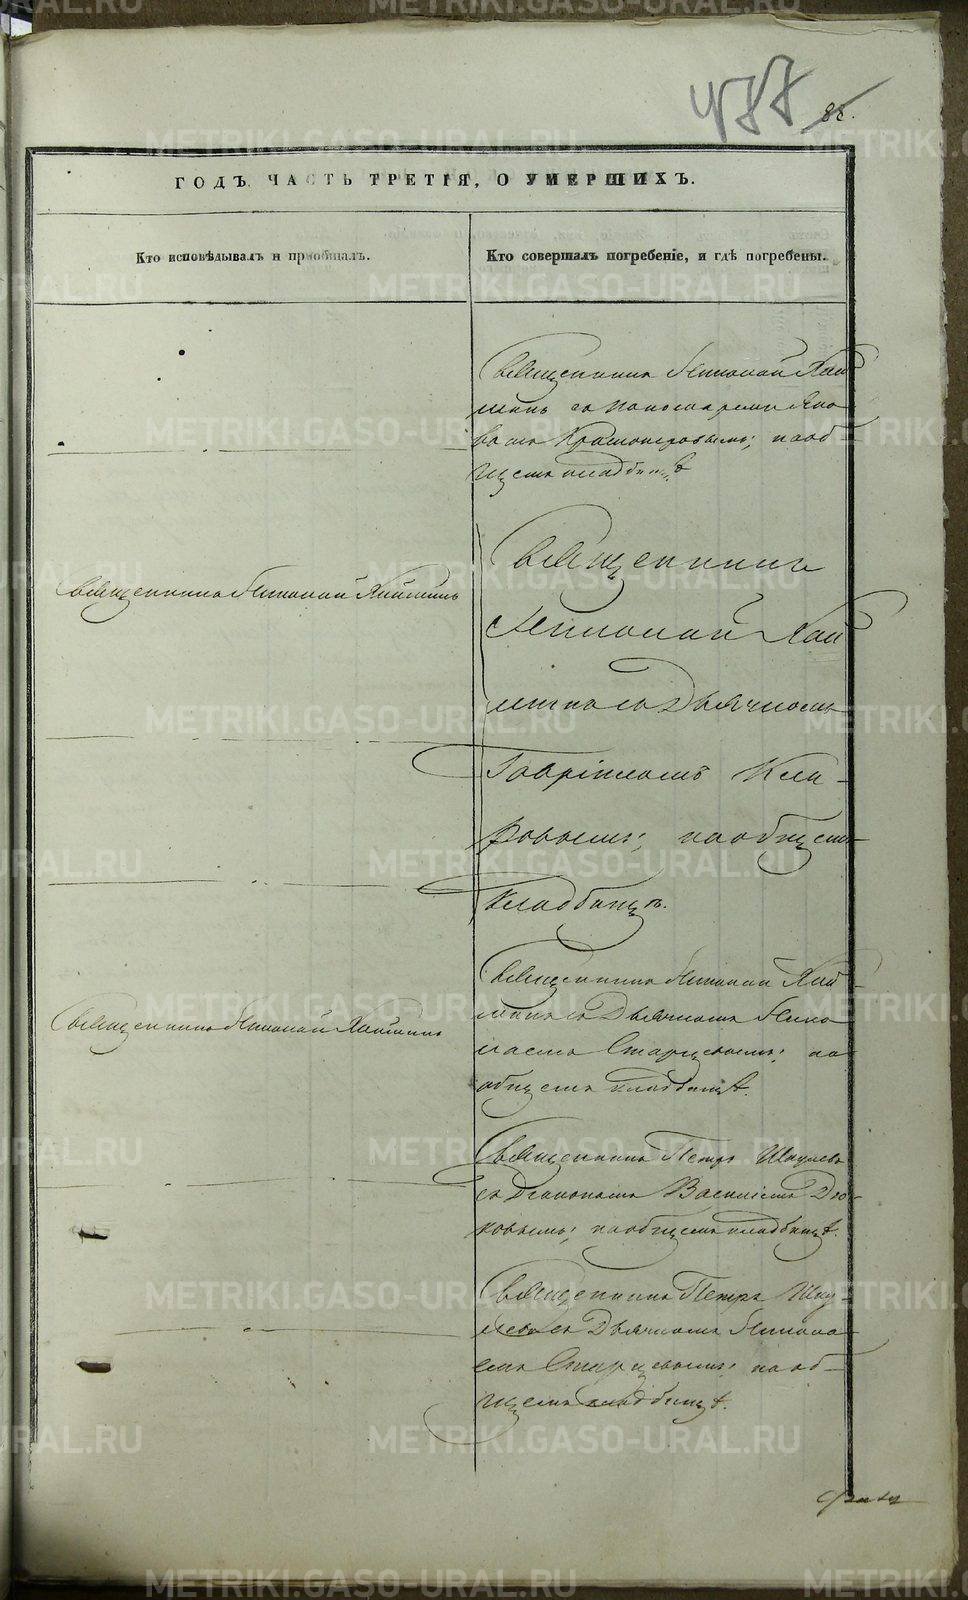 477
88.
ГОДЪ. ЧАСТЬ ТРЕТІЯ, О УМЕРШИХЪ.
Кто исповѣдывалъ и пріобщалъ.
Кто совершалъ погребеніе, и гдѣ погребены.
Священникъ Николай
съ пономаремъ Яко
вомъ Красноперовымъ; на об
щемъ кладбищѣ
Священникъ Николай
Священникъ
Николай
съ Дьячкомъ
Гавріиломъ Кли-
ровымъ; на общемъ
кладбищѣ.
Священникъ Николай
Священникъ Николай
съ Дьячкомъ Нико
лаемъ Старцевымъ; на
общемъ кладбищѣ.
Священникъ Петръ Шкулевъ
съ Діакономъ Василіемъ
на общемъ кладбищѣ.
Священникъ Петръ Шку-
левъ съ Дьячкомъ Никола-
емъ Старцевымъ; на об-
щемъ кладбищѣ.
METRIKI.GASO-URAL.RU